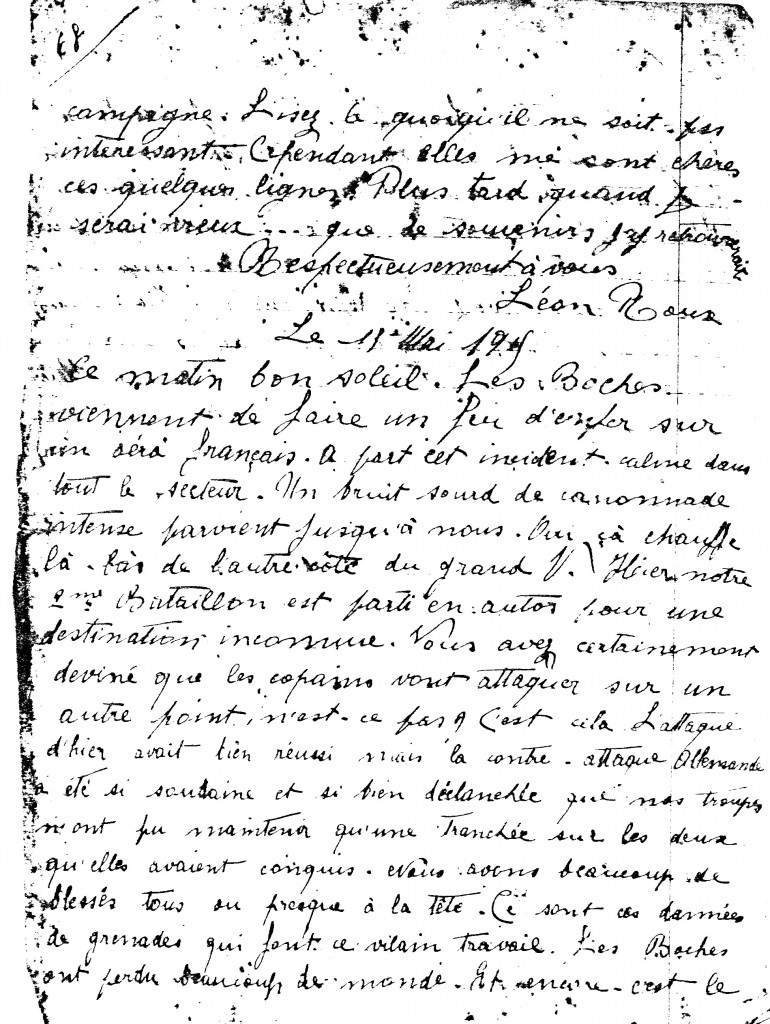 68
campagne. Lisez le quoiqu'il ne soit pas
intéressant. Cependant elles me sont chères
ces quelques lignes. Plus tard quand je
serai vieux... que de souvenirs j'y retrouverai
Respectueusement à vous
Léon Roux
Le 11 Mai 1915
Ce matin bon soleil. Les Boches
viennent de faire un feu d'enfer sur
un aéro français. A part cet incident. calme dans
tout le secteur. Un bruit sourd de canonnade
intense parvient jusqu'à nous. Oui çà chauffe
là-bàs de l'autre côté du grand V. Hier notre
2me Bataillon est parti en autos pour une
destination inconnue. Vous avez certainement
deviné que les copains vont attaquer sur un
autre point, n'est-ce pas? C'est cela L'attaque
d'hier avait bien réussi mais la contre-attaque Allemande
a été si soudaine et si bien déclanchée que nos troupes
n'ont pu maintenir qu'une Tranchée sur les deux
qu'elles avaient conquis. Nous avons beaucoup de
blessés tous ou presque à la tête. Ce sont ces damnées
de grenades qui font ce vilain travail. Les Boches
ont perdu beaucoup de monde. Et encore c'est le